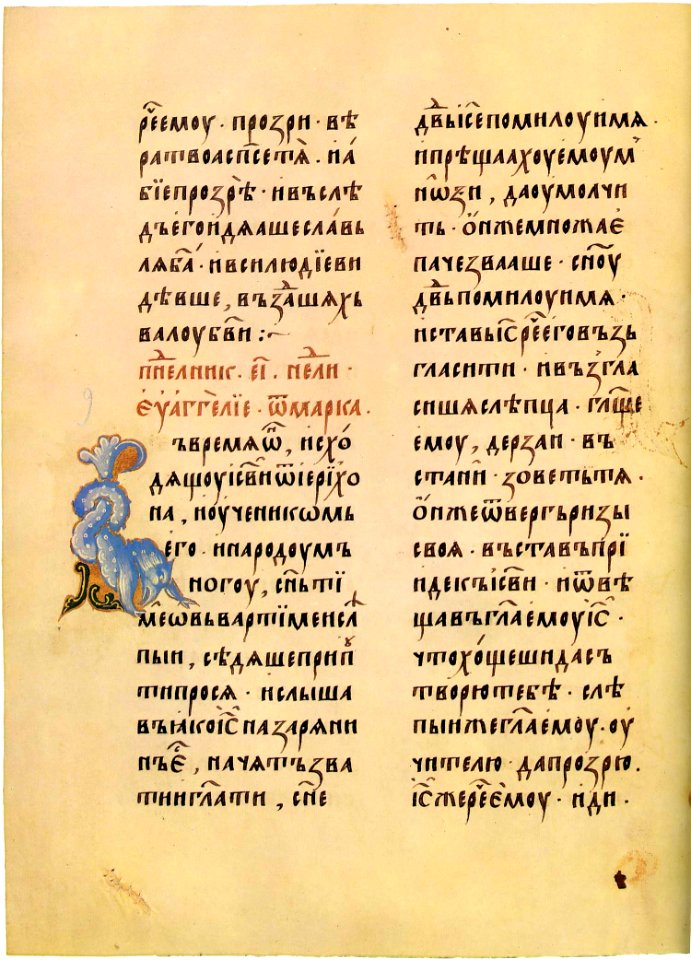 рч҃еемоу · прозри · вѣ
ратвоасп҃сетѧ̀ · иꙗ
бїепрозрѣ̀ · ивъслѣ
дъегоидѧашеславь
лѧб҃а · ивсилюдїеви
дѣвше, въꙁ҃ашѧхъ
валоубг҃ви :~
пн҃елник · еі҃ · нд҃ели ·
єуаггелїе · ѿмарка ·
ъвремѧѡ҃, исхо́
дѧщоуіс҃ви ѿіерїхо
на, иоученикѡмь
его · инародоумъ
ногоу, сн҃ьтї
мѐѡвьвартїменсл
пыи, сѣдѧшеприп
типросѧ · ислыша
въꙗкоіс҃назарѧни
нъе҃, начѧтъзва
тииглати, сн҃е
дв҃ыіс҃епомилоуимѧ ·
ипрѣщаахоуемоум
ниѡзи, даоумолчи
ть · о̑нжемножае
пачезвааше · сн҃оу
дв҃ьпомилоуимѧ ·
иставыіс҃рч҃ееговъзь
гласити · ивъзгла
сишѧслѣпца · гл҃ще
емоу, дерзаи · въ
стани · зоветьтѧ ·
о̑нжеѿвергъризы
своѧ · въставъпрї
идекъіс҃ви · иѿвѣ
щавъгл҃аемоуіс҃ ·
чтохо́щешидасъ
творютебѣ · слѣ
пыижегл҃аемоу · оу
чителю · дапрозрю ·
іс҃жерч҃еемоу · иди ·